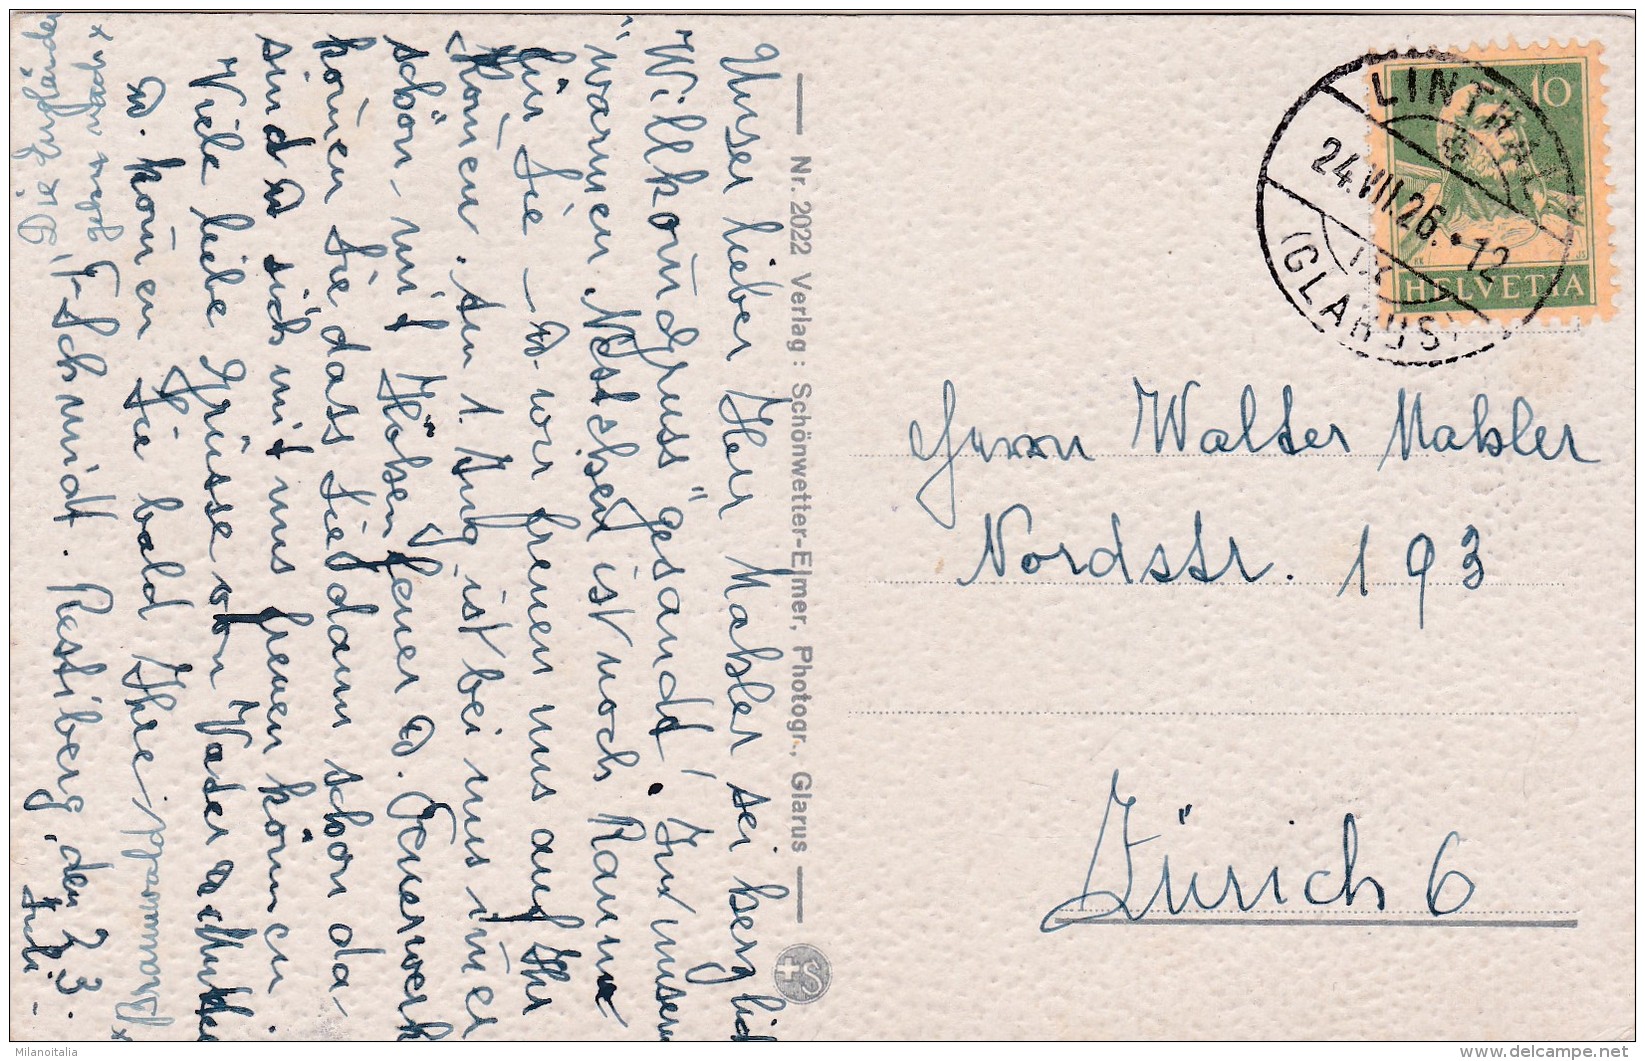 Unser lieber Herr Mahler sei herzlich
Willkom̄gruss" gesandt! In unserm
"warmen Nestchen ist noch Raum
für Sie - w. wir freuen uns auf Ihr
Kom̄en. Am 1. Aug. ist bei uns im̄er
schön, mit Höhenfeuer w. Feuerwerk
kom̄en Sie dass Sie dann schon da-
sind w sich mit uns freuen können.
Viele liebe Grüsse von Vater Mutter
w. kom̄en Sie bald Ihre
F. Schmidt. Restiberg, den 23.
Juli -
Die Engländer
Nr. 2022 Verlag: Schönwetter-Elmer, Photogr., Glarus
+S
LINTHAL
24.VII.26.•12
IX
(GLARUS)
10
HELVETIA
Herrn Walter Mahler
Nordstr. 193
Zürich 6
Milanoitalia
delcampe.net